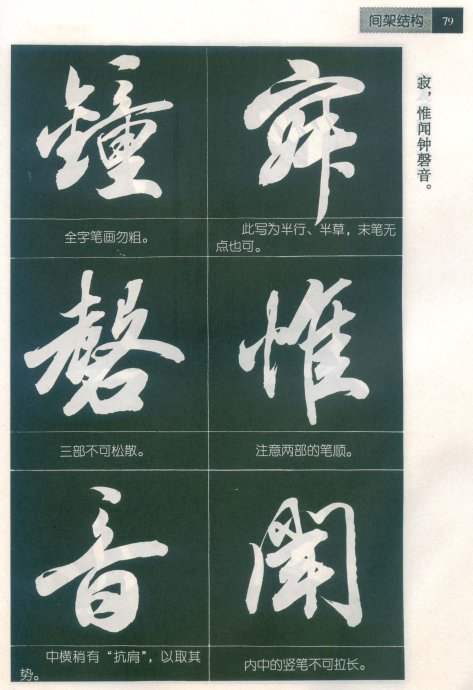 间架结构 79
寂，惟闻钟磬音。
寂
此写为半行、半草，末笔无
点也可。
惟
注意两部的笔顺。
聞
内中的竖笔不可拉长。
鐘
全字笔画勿粗。
磬
三部不可松散。
音
中横稍有“抗肩”，以取其
势。